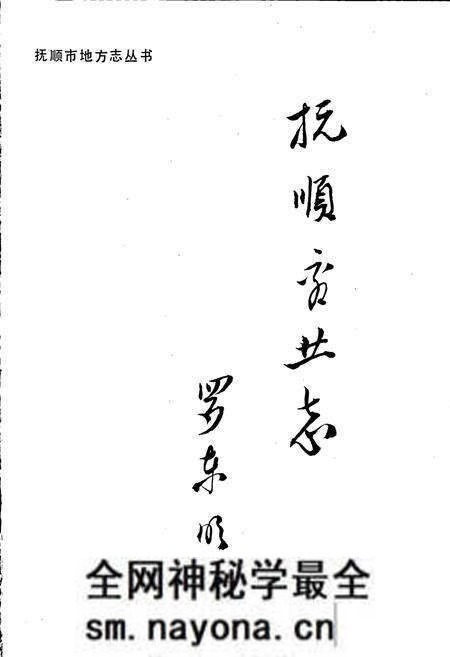 抚顺市地方志丛书
抚順商业志
罗东明
全网神秘学最全
sm.nayona.cn